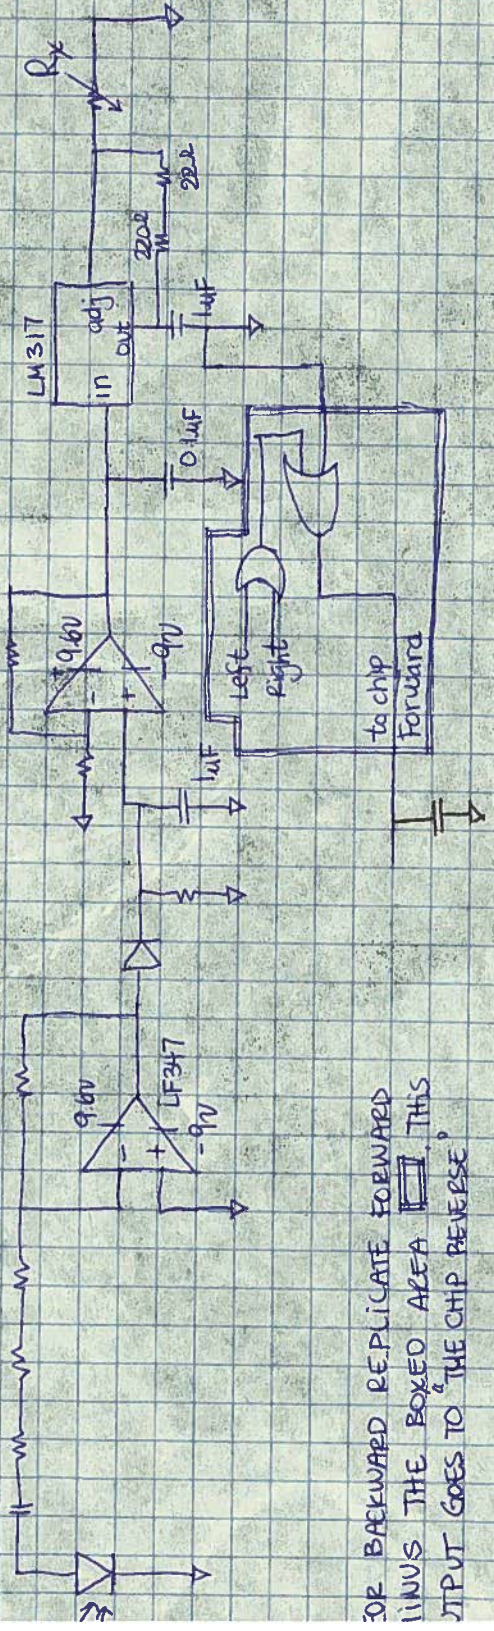 Rx
LM317
in
adj
out
220Ω
22Ω
1uF
0.1uF
+9.6V
-
+
-9V
1uF
9.6V
-
+
-9V
LF347
Left
Right
to chip
Forward
FOR BACKWARD REPLICATE FORWARD
MINUS THE BOXED AREA . THIS
OUTPUT GOES TO "THE CHIP REVERSE"